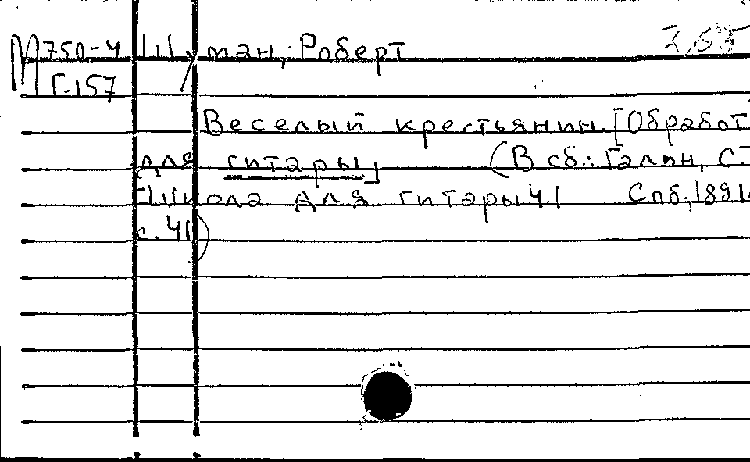 М 750-4 Шуман, Роберт
Г-157
Веселый крестьянин. [Обработ
для гитары] (В сб.: Галин, С.
Школа для гитары Ч I Спб, 1891
с. 41)